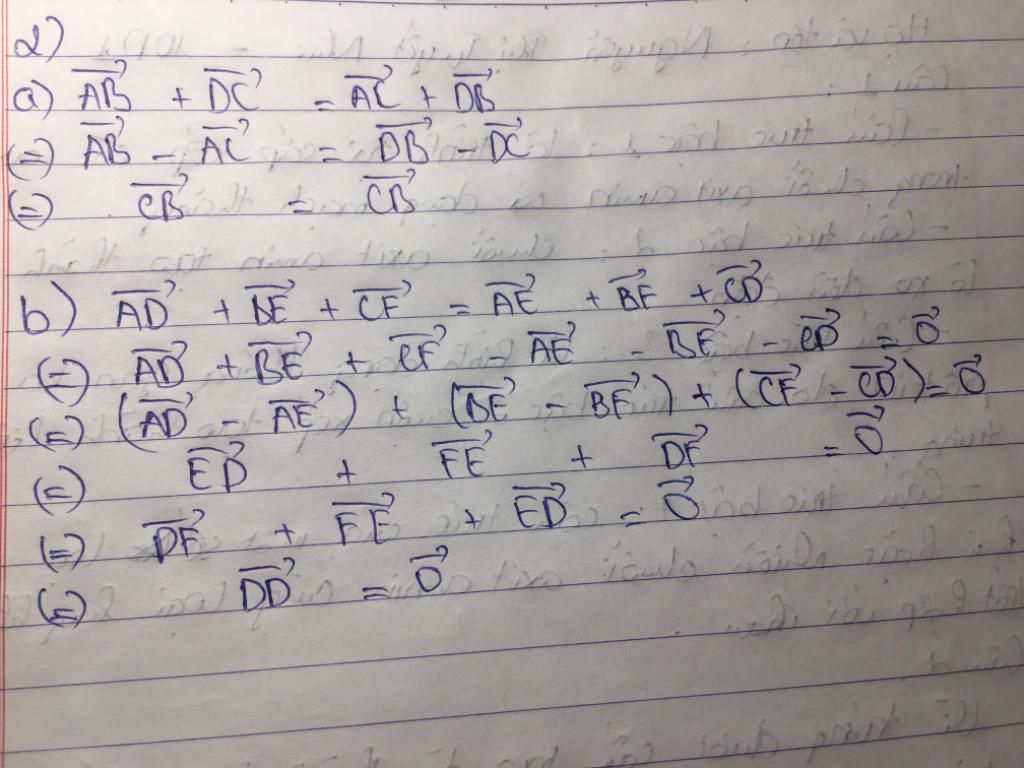 2)
a) $\overrightarrow{AB} + \overrightarrow{DC} = \overrightarrow{AC} + \overrightarrow{DB}$
(=) $\overrightarrow{AB} - \overrightarrow{AC} = \overrightarrow{DB} - \overrightarrow{DC}$
(=) $\overrightarrow{CB} = \overrightarrow{CB}$
b) $\overrightarrow{AD} + \overrightarrow{BE} + \overrightarrow{CF} = \overrightarrow{AE} + \overrightarrow{BF} + \overrightarrow{CD}$
(=) $\overrightarrow{AD} + \overrightarrow{BE} + \overrightarrow{CF} - \overrightarrow{AE} - \overrightarrow{BF} - \overrightarrow{CD} = \overrightarrow{0}$
(=) $(\overrightarrow{AD} - \overrightarrow{AE}) + (\overrightarrow{BE} - \overrightarrow{BF}) + (\overrightarrow{CF} - \overrightarrow{CD}) = \overrightarrow{0}$
(=) $\overrightarrow{ED} + \overrightarrow{FE} + \overrightarrow{DF} = \overrightarrow{0}$
(=) $\overrightarrow{DF} + \overrightarrow{FE} + \overrightarrow{ED} = \overrightarrow{0}$
(=) $\overrightarrow{DD} = \overrightarrow{0}$